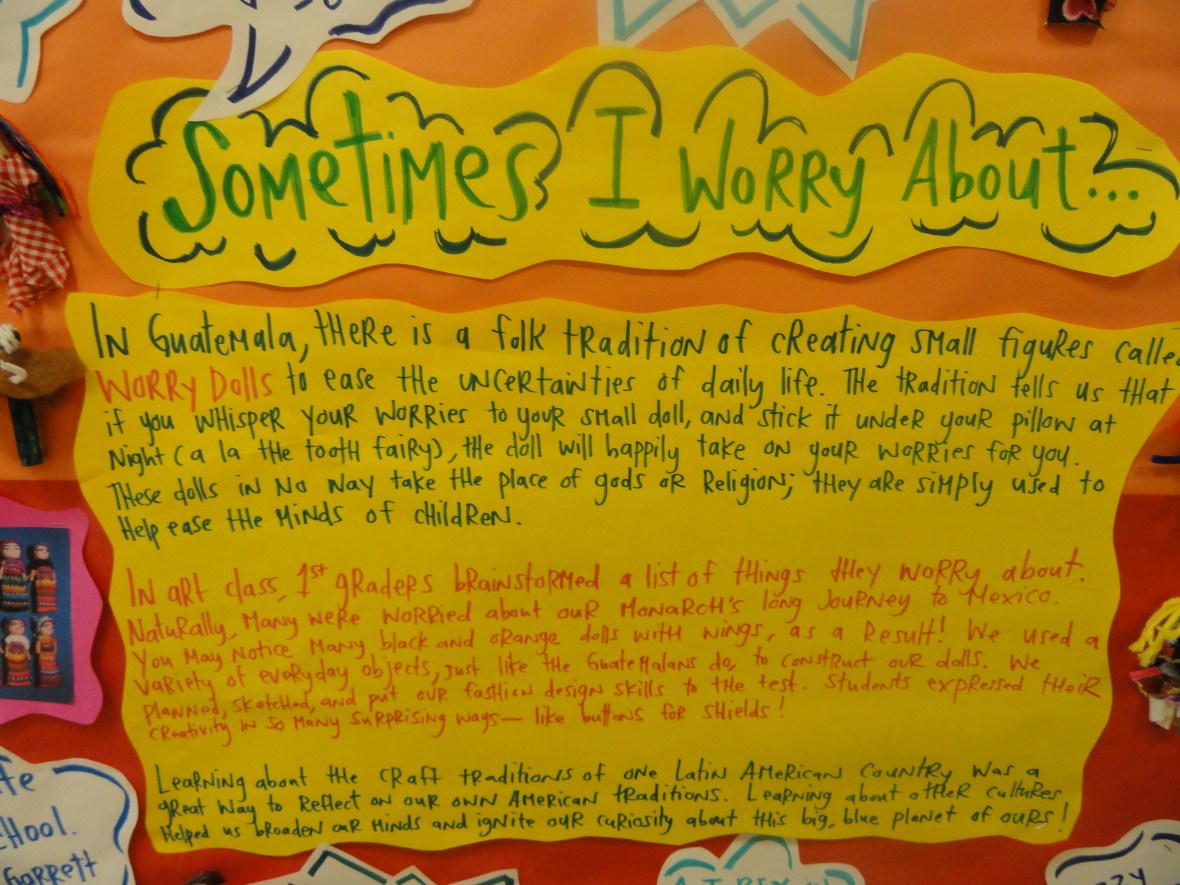 Sometimes I Worry About...
In Guatemala, there is a folk tradition of creating small figures called
Worry Dolls to ease the uncertainties of daily life. The tradition tells us that
if you whisper your worries to your small doll, and stick it under your pillow at
night (a la the tooth fairy), the doll will happily take on your worries for you.
These dolls in no way take the place of gods or religion; they are simply used to
help ease the minds of children.
In art class, 1st graders brainstormed a list of things they worry about.
Naturally, many were worried about our monarch's long journey to Mexico.
You may notice many black and orange dolls with wings, as a result! We used a
variety of everyday objects, just like the Guatemalans do, to construct our dolls. We
planned, sketched, and put our fashion design skills to the test. Students expressed their
creativity in so many surprising ways— like buttons for shields!
Learning about the craft traditions of one Latin American country was a
great way to reflect on our own American traditions. Learning about other cultures
helped us broaden our minds and ignite our curiosity about this big, blue planet of ours!
Garrett